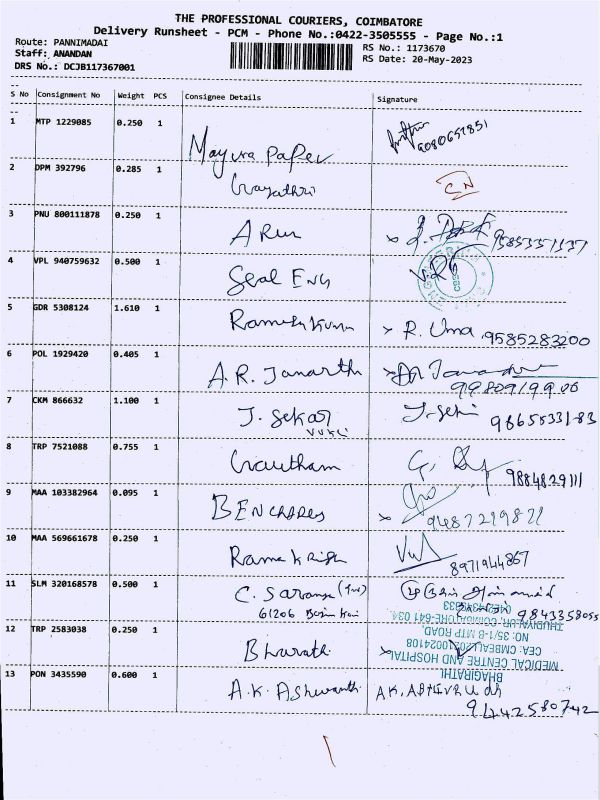 THE PROFESSIONAL COURIERS, COIMBATORE
Delivery Runsheet - PCM - Phone No.:0422-3505555 - Page No.:1
Route: PANNIMADAI
Staff: ANANDAN
DRS No.: DCJB117367001
RS No.: 1173670
RS Date: 20-May-2023
S No Consignment No Weight PCS Consignee Details Signature
1 MTP 1229085 0.250 1 Mayura Paper 9080657851
2 DPM 392796 0.285 1 Gayathri
3 PNU 800111878 0.250 1 Arun 9585351137
4 VPL 940759632 0.500 1 Seal Eng
5 GDR 5308124 1.610 1 Ramesh Kumar R. Uma 9585283200
6 POL 1929420 0.405 1 A.R. Janarth 9980919900
7 CKM 866632 1.100 1 J. Sekar 9865533183
8 TRP 7521088 0.755 1 Gautham 9884829111
9 MAA 103382964 0.095 1 9487219821
10 MAA 569661678 0.250 1 Rama Krish 8971944867
11 SLM 320168578 0.500 1 C. Saravana 9843358055
61206
12 TRP 2583038 0.250 1 Bharath
THUDIYALUR, COIMBATORE-641 034
NO: 35/1-B MTP ROAD,
MEDICAL CENTRE AND HOSPITAL
BHAGIRATHI
13 PON 3435590 0.600 1 A.K. Ashwanth A.K.
9442580742